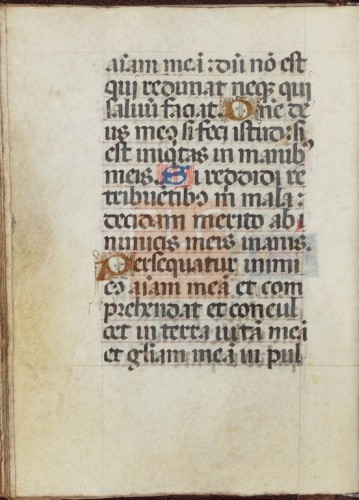 aīam meā : dū nō est
qui redimat neqꝫ qui
saluū faciat. Dñe de
us meꝰ si feci istud : si
est iniqͥtas in manibꝰ
meis. Si reddidi re
tribuētibꝰ m̄ mala :
decidam merito ab i
nimicis meis inanis.
Persequatur inimi
cꝰ aīam meā et com
prehendat et concul
cet in terra uitā meā
et gl̄iam meā in pul